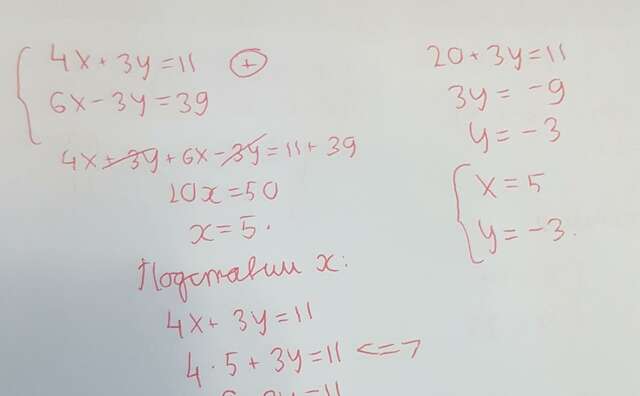 4x + 3y = 11 (+)
6x - 3y = 39
4x + 3y + 6x - 3y = 11 + 39
10x = 50
x = 5.
Подставим x:
4x + 3y = 11
4 · 5 + 3y = 11 <=>
3y = 11
20 + 3y = 11
3y = -9
y = -3
x = 5
y = -3.